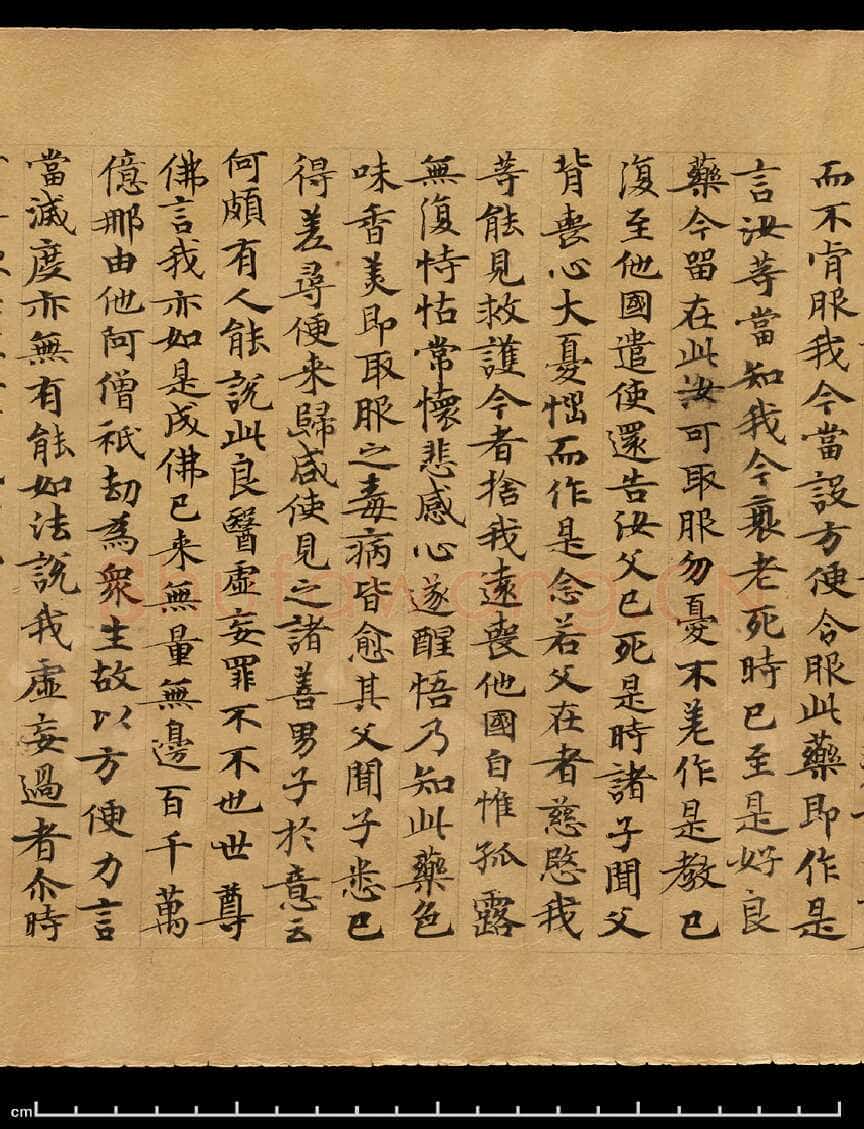 而不肯服我今當設方便令服此藥即作是
言汝等當知我今衰老死時已至是好良
藥今留在此汝可取服勿憂不差作是教已
復至他國遣使還告汝父已死是時諸子聞父
背喪心大憂惱而作是念若父在者慈愍我
等能見救護今者捨我遠喪他國自惟孤露
無復恃怙常懷悲感心遂醒悟乃知此藥色
味香美即取服之毒病皆愈其父聞子悉已
得差尋便来歸咸使見之諸善男子於意云
何頗有人能說此良醫虛妄罪不不也世尊
佛言我亦如是成佛已来無量無邊百千萬
億那由他阿僧祇劫為衆生故以方便力言
當滅度亦無有能如法說我虛妄過者尒時
cm